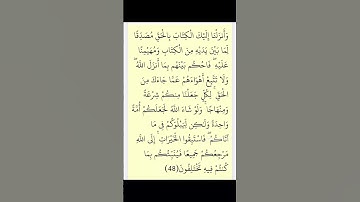 وَأَنزَلْنَا إِلَيْكَ الْكِتَابَ بِالْحَقِّ مُصَدِّقًا
لِّمَا بَيْنَ يَدَيْهِ مِنَ الْكِتَابِ وَمُهَيْمِنًا
عَلَيْهِ ۖ فَاحْكُم بَيْنَهُم بِمَا أَنزَلَ اللَّهُ ۖ
وَلَا تَتَّبِعْ أَهْوَاءَهُمْ عَمَّا جَاءَكَ مِنَ
الْحَقِّ ۚ لِكُلٍّ جَعَلْنَا مِنكُمْ شِرْعَةً
وَمِنْهَاجًا ۚ وَلَوْ شَاءَ اللَّهُ لَجَعَلَكُمْ أُمَّةً
وَاحِدَةً وَلَٰكِن لِّيَبْلُوَكُمْ فِي مَا
آتَاكُمْ ۖ فَاسْتَبِقُوا الْخَيْرَاتِ ۚ إِلَى اللَّهِ
مَرْجِعُكُمْ جَمِيعًا فَيُنَبِّئُكُم بِمَا
كُنتُمْ فِيهِ تَخْتَلِفُونَ(48)